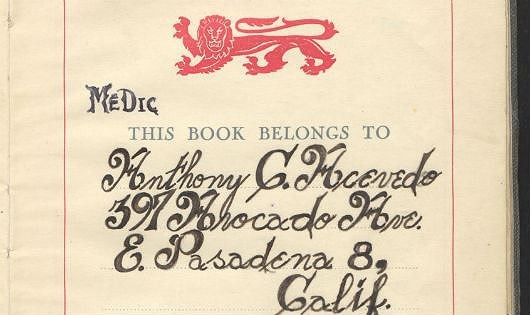 MEDIC
THIS BOOK BELONGS TO
Anthony C. Acevedo
391 Avocado Ave.
E. Pasadena 8,
Calif.